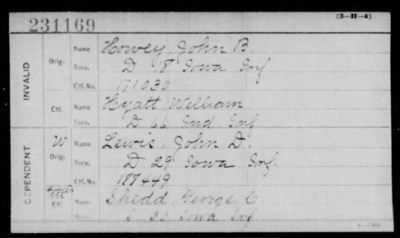 231169
(3-H-4)
INVALID
Orig.
Name Howey, John B.
Serv. D 18 Iowa Inf
Ctf. No. 171032
Ctf.
Name Hyatt, William
Serv. D 66 Ind Inf
DEPENDENT
W
Orig.
Name Lewis, John D.
Serv. D 29 Iowa Inf.
Ctf. No. 188449
Ctf.
Name Shedd George C
Serv. 33 Iowa Inf